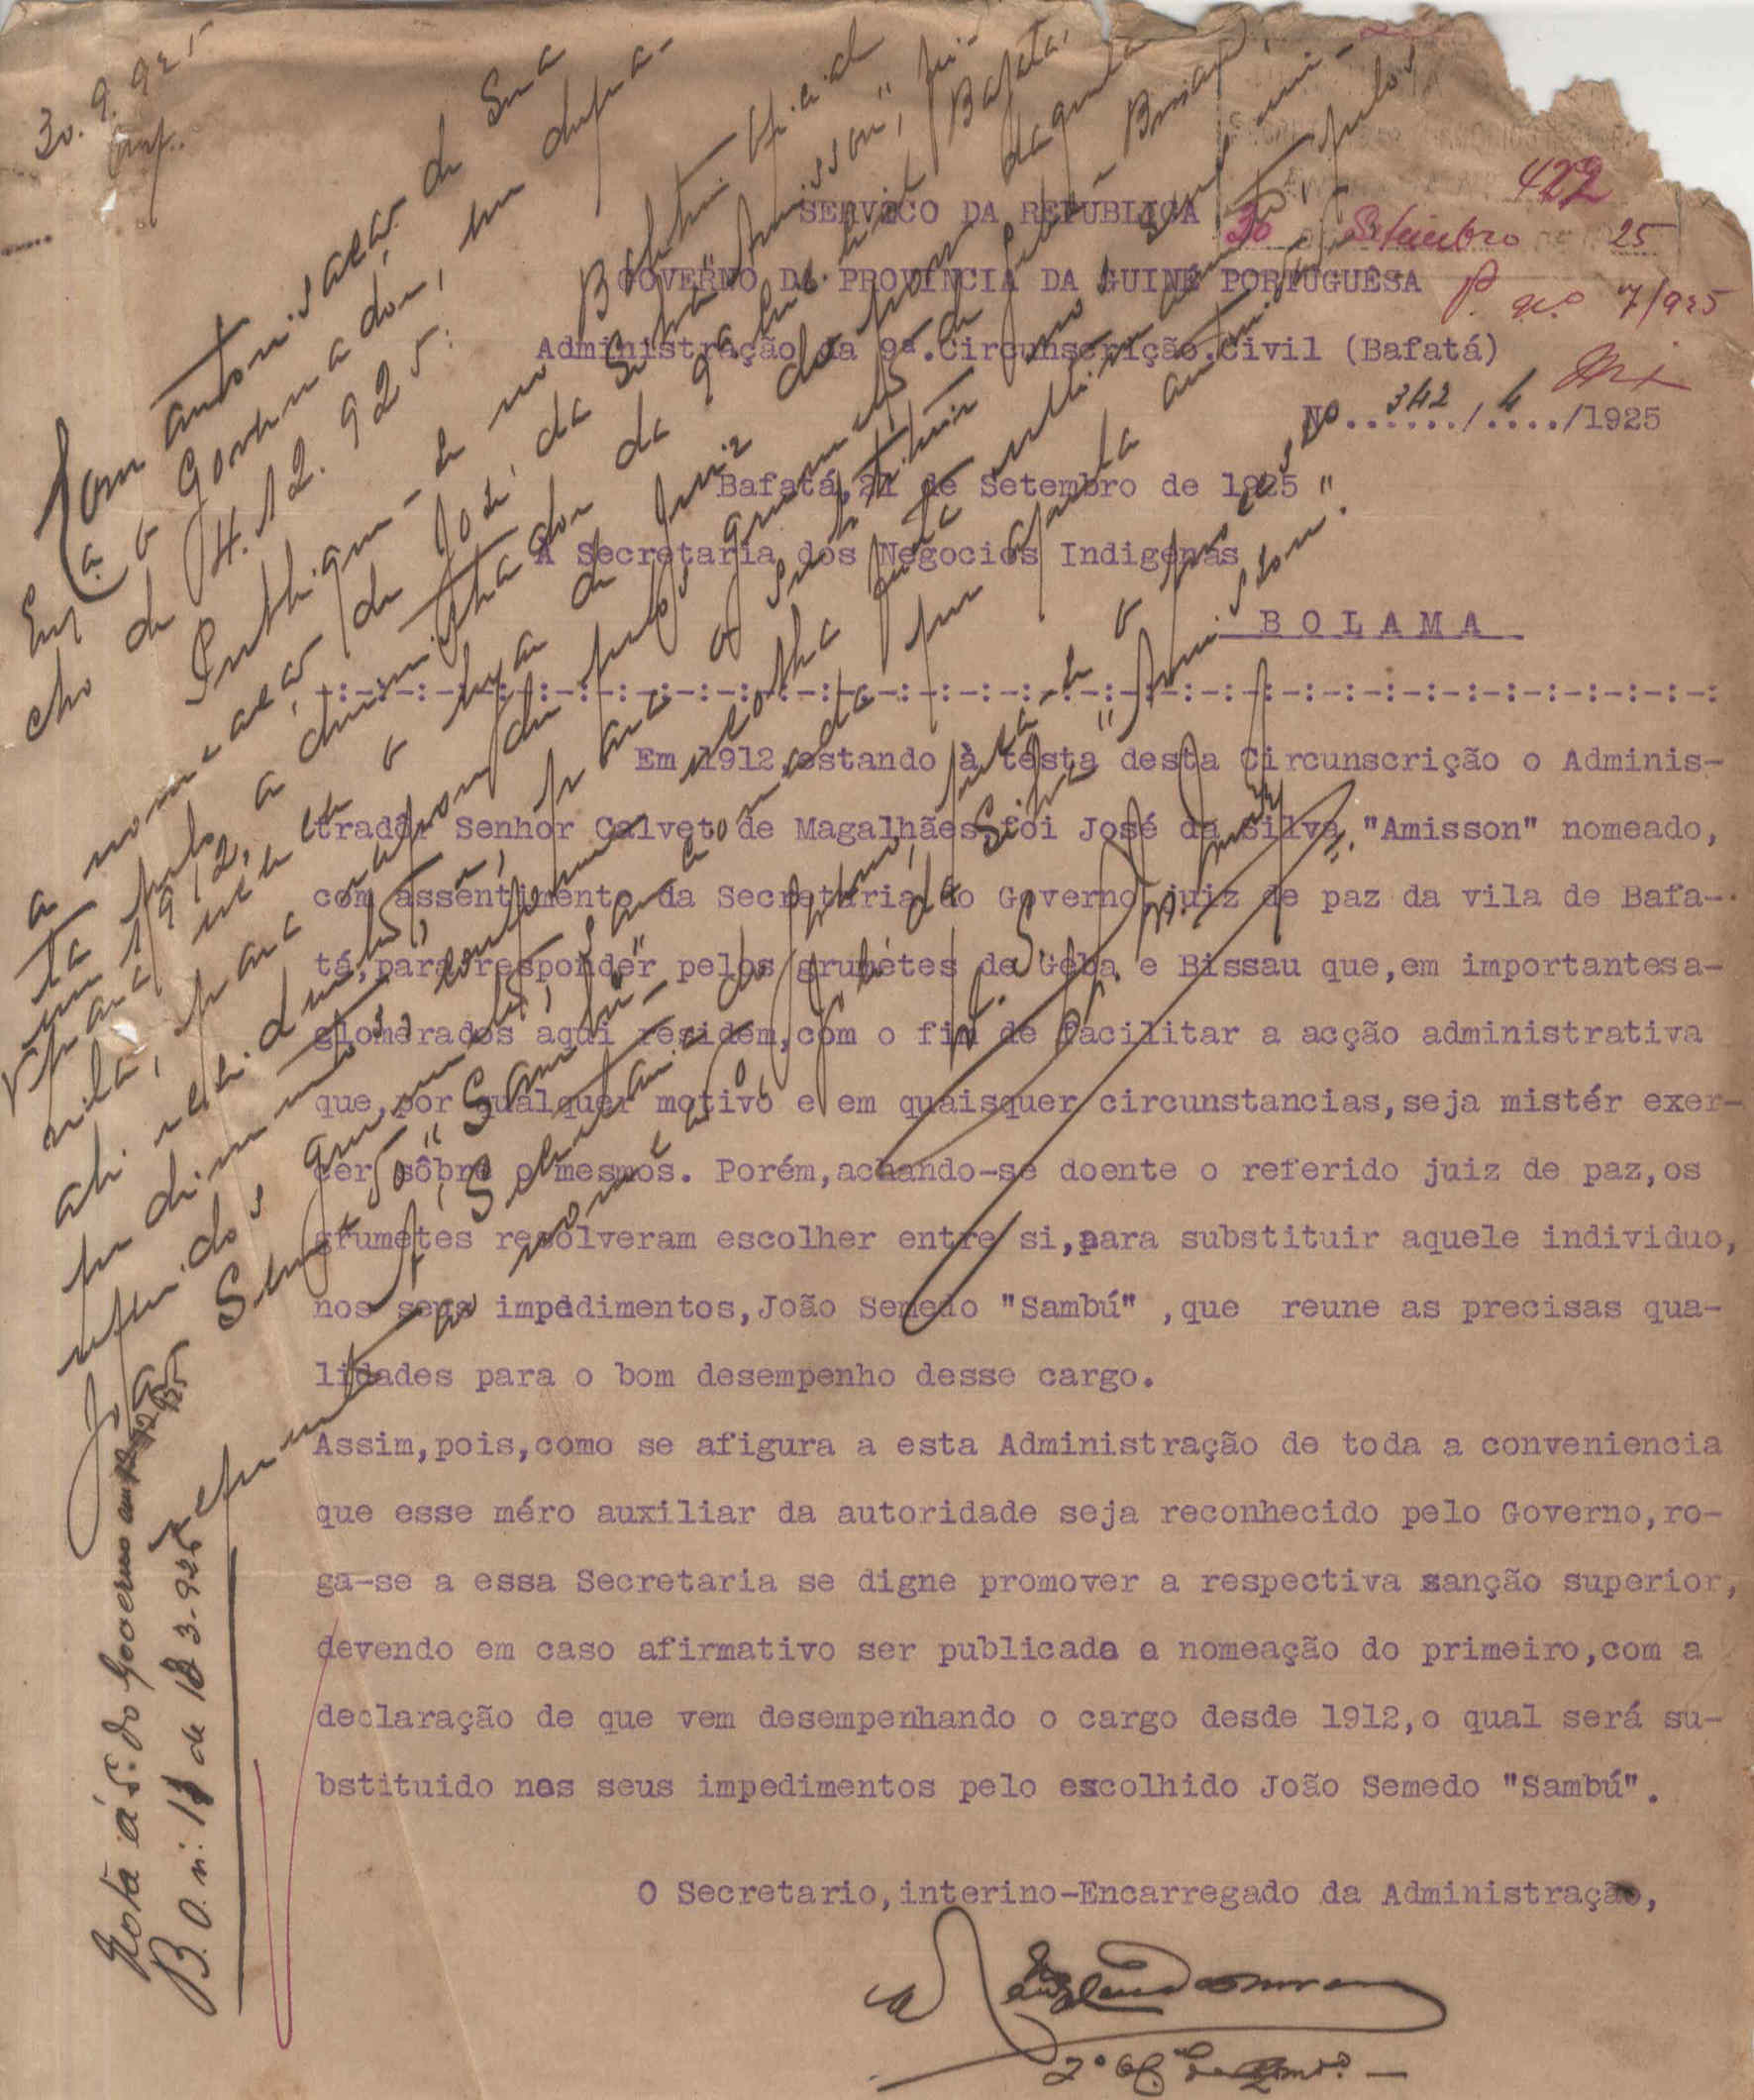 30.9.925
422
30 Setembro de 1925
P. nº 7/925
SERVIÇO DA REPÚBLICA
GOVERNO DA PROVINCIA DA GUINÉ PORTUGUÊSA
Administração da 9ª.Circunscrição.Civil (Bafatá)
Nº..342../.4../1925
Bafatá,21 de Setembro de 1925
À Secretaria dos Negocios Indigenas
B O L A M A
-:-:-:-:-:-:-:-:-:-:-:-:-:-:-:-:-:-:-:-:-:-:-:-:-:-:-:-:-:-:-:-:-:-:-:
Em 1912,estando à testa desta Circunscrição o Adminis-
tradôr Senhor Calveto de Magalhães,foi José da Silva "Amisson" nomeado,
com assentimento da Secretaria do Governo,juiz de paz da vila de Bafa-
tá,para responder pelos grumetes de Geba e Bissau que,em importantesa-
glomerados aqui residem,com o fim de facilitar a acção administrativa
que,por qualquer motivo e em quaisquer circunstancias,seja mistér exer-
cer sôbre o mesmos. Porém,achando-se doente o referido juiz de paz,os
grumetes resolveram escolher entre si,para substituir aquele individuo,
nos seus impedimentos,João Semedo "Sambú" ,que reune as precisas qua-
lidades para o bom desempenho desse cargo.
Assim,pois,como se afigura a esta Administração de toda a conveniencia
que esse méro auxiliar da autoridade seja reconhecido pelo Governo,ro-
ga-se a essa Secretaria se digne promover a respectiva sanção superior,
devendo em caso afirmativo ser publicada a nomeação do primeiro,com a
declaração de que vem desempenhando o cargo desde 1912,o qual será su-
bstituido nos seus impedimentos pelo escolhido João Semedo "Sambú".
O Secretario,interino-Encarregado da Administração,
Com autorisação de Sua
Exª o Governador, em despa-
cho de 4.12.925:
Publique-se no Boletim Oficial
a nomeação de José da Silva "Amisson", fei-
ta pelo administrador da 9ª circ. civil, Bafatá,
em 1912, para o lugar de Juiz do povo daquela
vila, para responder pelos grumetes de Geba e Bissau,
ali residentes, e para o substituir nos seus im-
pedimentos,
referidos grumetes,
João Semedo "Sambú"
Nota á S. do Governo em
B.O. n.: 11 de 18-3-926